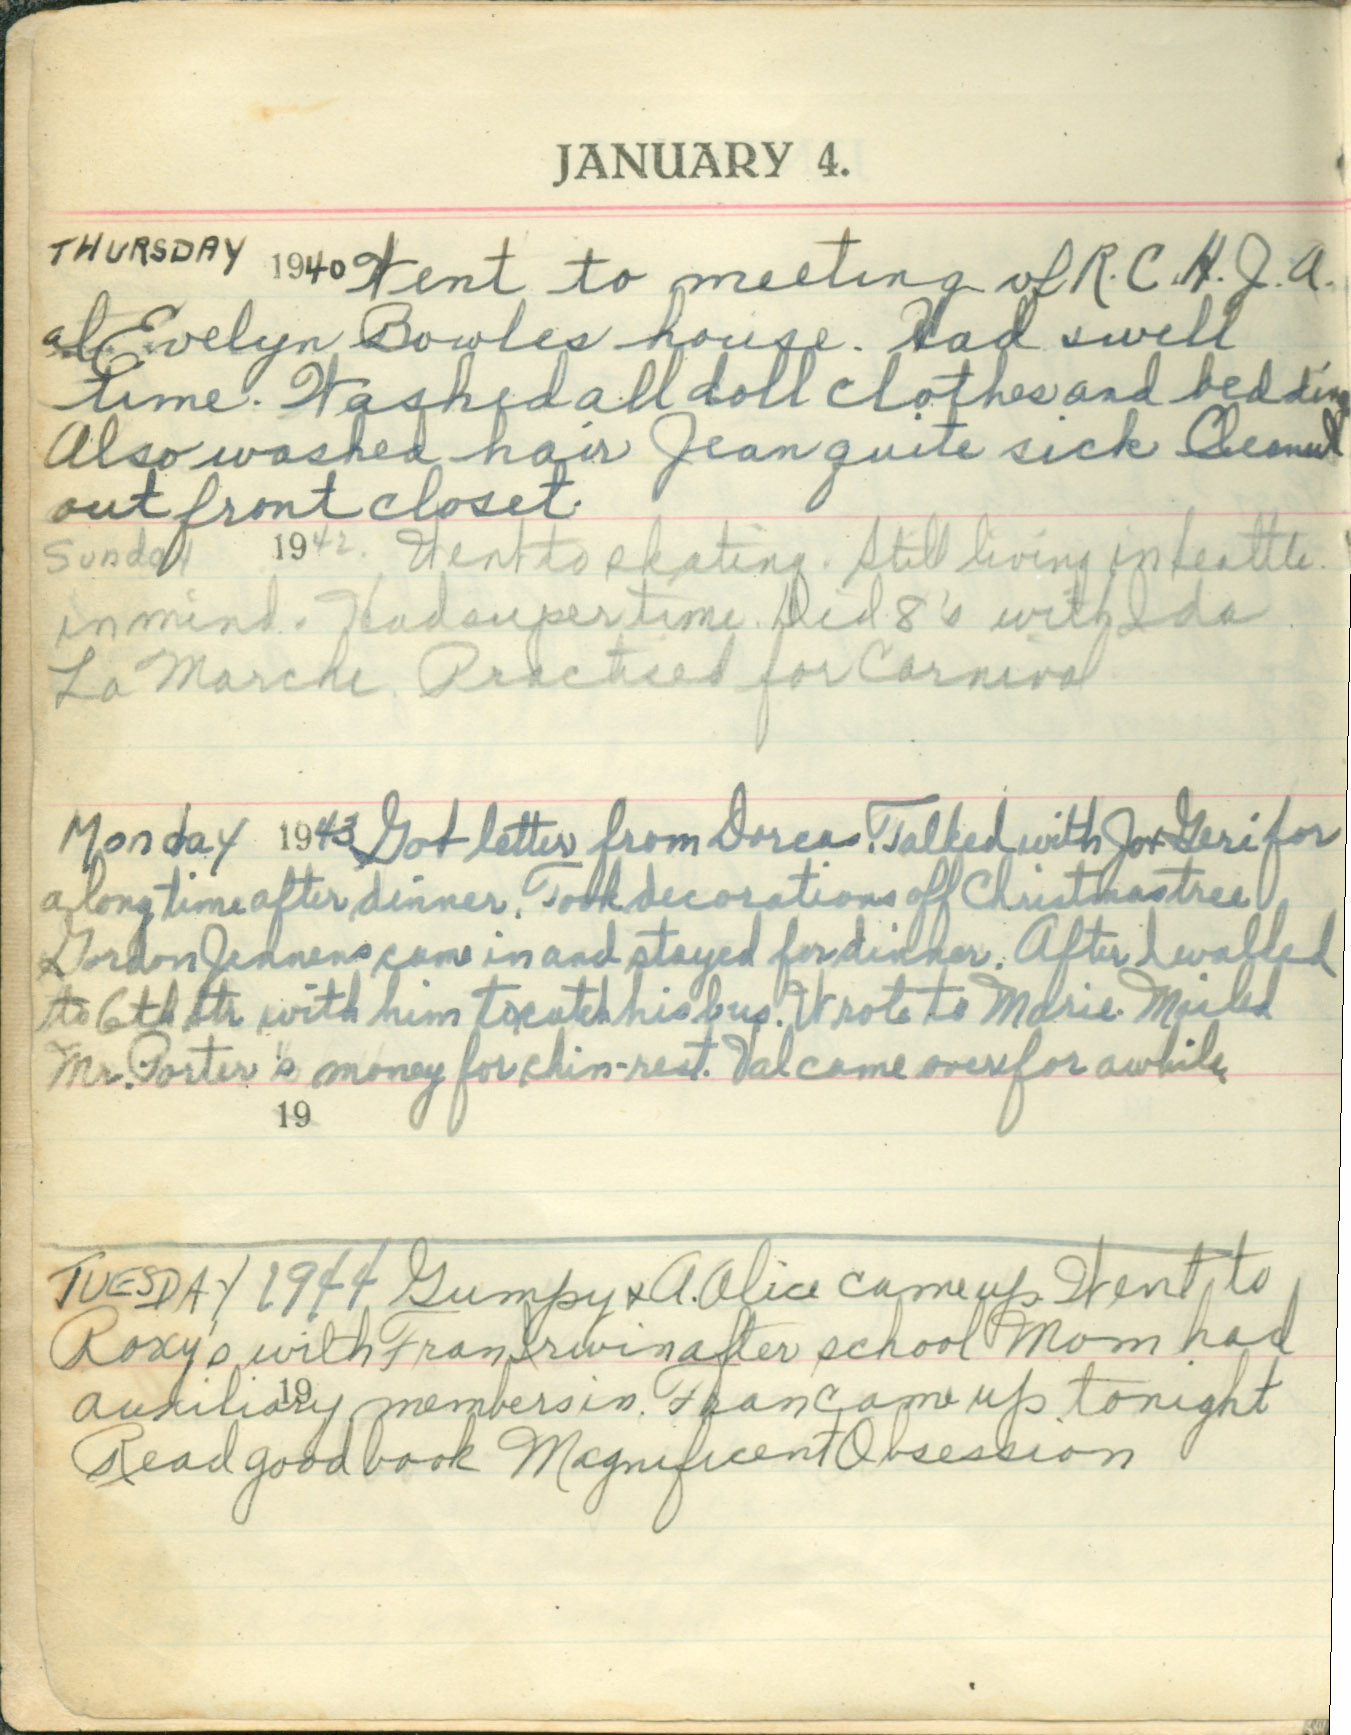 JANUARY 4.
THURSDAY 1940 Went to meeting of R.C.H.J.A.
at Evelyn Bowles house. Had swell
time. Washed all doll clothes and bedding
Also washed hair Jean quite sick Cleaned
out front closet.
Sunday 1942. Went to skating. Still living in Seattle
in mind. Had super time. Did 8's with Ida
La Marche. Practised for Carnival
Monday 1943 Got letter from Dorcas. Talked with Jo + Geri for
a long time after dinner. Took decorations off Christmas tree
Gordon Jennens came in and stayed for dinner. After I walked
to 6th str with him to catch his bus. Wrote to Marie. Mailed
Mr. Porter's money for chin-rest. Val came over for awhile
19
TUESDAY 1944 Gumpy + A. Alice came up. Went to
Roxy's with Fran Irwin after school Mom had
19
auxiliary members in. Fran came up tonight
Read good book Magnificent Obsession